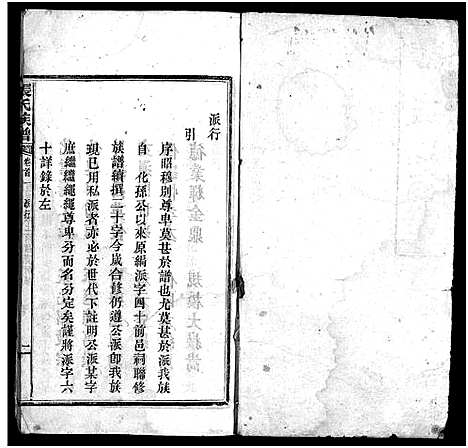 派行
引
序昭穆別尊卑莫甚於譜也尤莫甚於派我族
自　化孫公以來原編派字四十前邑祠聯修
族譜續撰二十字今歲合修仍遵公派卽我族
現已用私派者亦必於世代下註明公派某字
庶繼繼繩繩尊卑分而名分定矣謹將派字六
十詳錄於左
張氏族譜
卷首
派行